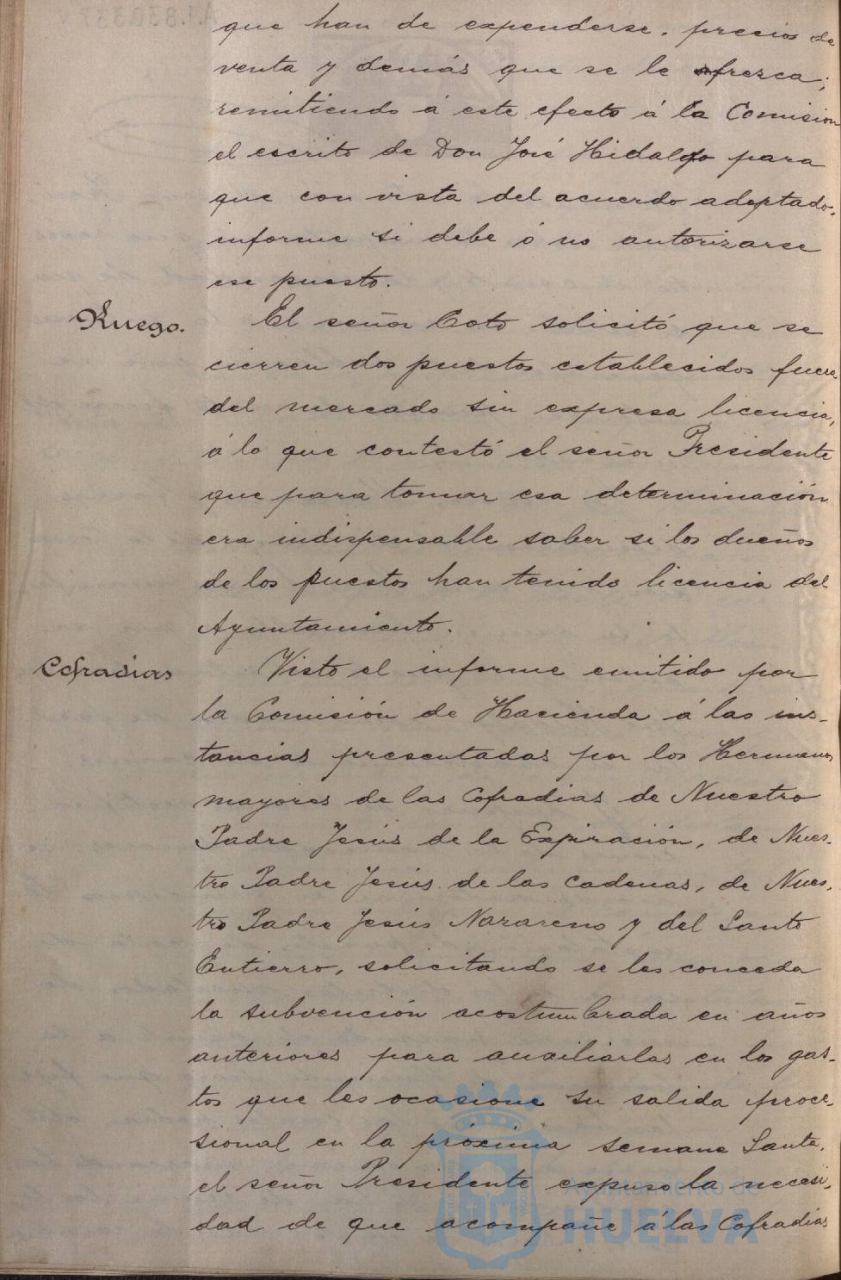 que han de expenderse, precios de
venta y demás que se le ofrezca;
remitiendo á este efecto á la Comision
el escrito de Don José Hidalgo para
que con vista del acuerdo adoptado,
informe si debe ó no autorizarse
ese puesto.
Ruego.
El señor Coto solicitó que se
cierren dos puestos establecidos fuera
del mercado sin expresa licencia,
á lo que contestó el señor Presidente
que para tomar esa determinación
era indispensable saber si los dueños
de los puestos han tenido licencia del
Ayuntamiento.
Cofradias
Visto el informe emitido por
la Comisión de Hacienda á las ins-
tancias presentadas por los Hermanos
mayores de las Cofradias de Nuestro
Padre Jesús de la Expiración, de Nues-
tro Padre Jesús de las Cadenas, de Nues-
tro Padre Jesús Nazareno y del Santo
Entierro, solicitando se les conceda
la subvención acostumbrada en años
anteriores para auxiliarlas en los gas-
tos que les ocasione su salida proce-
sional en la próxima semana Santa,
el señor Presidente expuso la necesi-
dad de que acompañe á las Cofradias
Ayuntamiento de
HUELVA